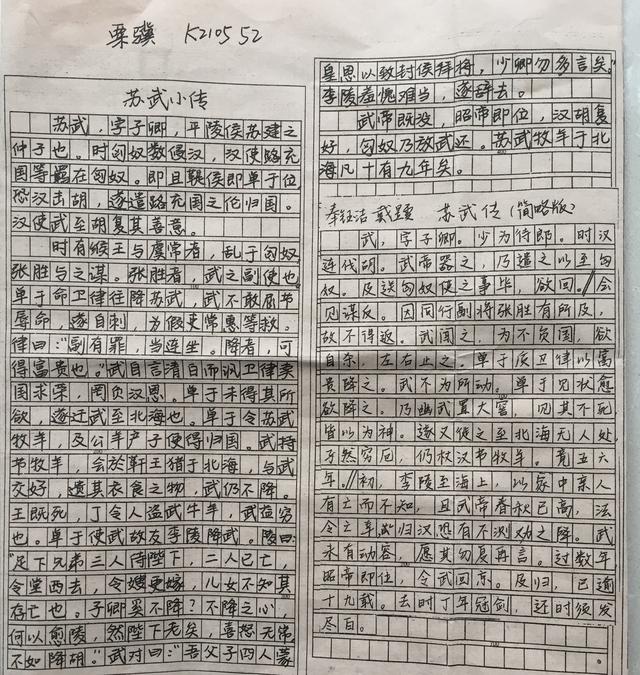 栗骥 K210552
苏武小传
苏武，字子卿，平陵侯苏建之
仲子也。时匈奴数侵汉，汉使路充
国等羁在匈奴。即且鞮侯即单于位，
恐汉击胡，遂遣路充国之伦归国。
汉使武至胡复其善意。
时有缑王与虞常者，乱于匈奴
张胜与之谋。张胜者，武之副使也
单于命卫律往降苏武，武不敢屈节
辱命，遂自刺，为假吏常惠等救。
律曰："副有罪，当连坐。降者，可
得富贵也。"武自言清白而讽卫律卖
国求荣，罔负汉恩。单于未得其所
欲，遂迁武至北海也。单于令苏武
牧羊，及公羊产子使得归国。武持
节牧羊，会於靬王猎于北海，与武
交好，遗其衣食之物，武仍不降。
王既死，丁令人盗武牛羊，武益穷
也。单于使武故友李陵降武。陵曰：
"足下兄弟三人侍陛下，二人已亡，
令堂西去，令嫂更嫁，儿女不知其
存亡也。子卿奚不降？不降之心，
何以愈陵，然陛下老矣，喜怒无常，
不如降胡。"武对曰："吾父子四人蒙
皇恩以致封侯拜将，少卿勿多言矣。"
李陵羞愧难当，遂辞去。
武帝既没，昭帝即位，汉胡复
好，匈奴乃放武还。苏武牧羊于北
海凡十有九年矣。
奉钰洁 戴题 苏武传（简略版）
武，字子卿。少为侍郎。时汉
连代胡。武帝器之，乃遣之以至匈
奴。及送匈奴使之事毕，欲回。//会
见谋反。因同行副将张胜有所及，
故不得返。武闻之，为不负国，欲
自杀，左右止之。单于反卫律以富
贵降之。武不为所动。单于见状愈
欲降之。乃幽武置大窖，见其不死
皆以为神。遂又使之至北海无人处，
孑然穷厄，仍杖汉节牧羊。竟五六
年。//初，李陵至海上，以家中亲人
有亡而不知，且武帝春秋已高，法
令之 归汉恐有不测劝之降。武
永有动容，愿其勿复再言。过数年
昭帝即位，令武回京。及归，已逾
十九载。去时丁年冠剑，还时须发
尽白。